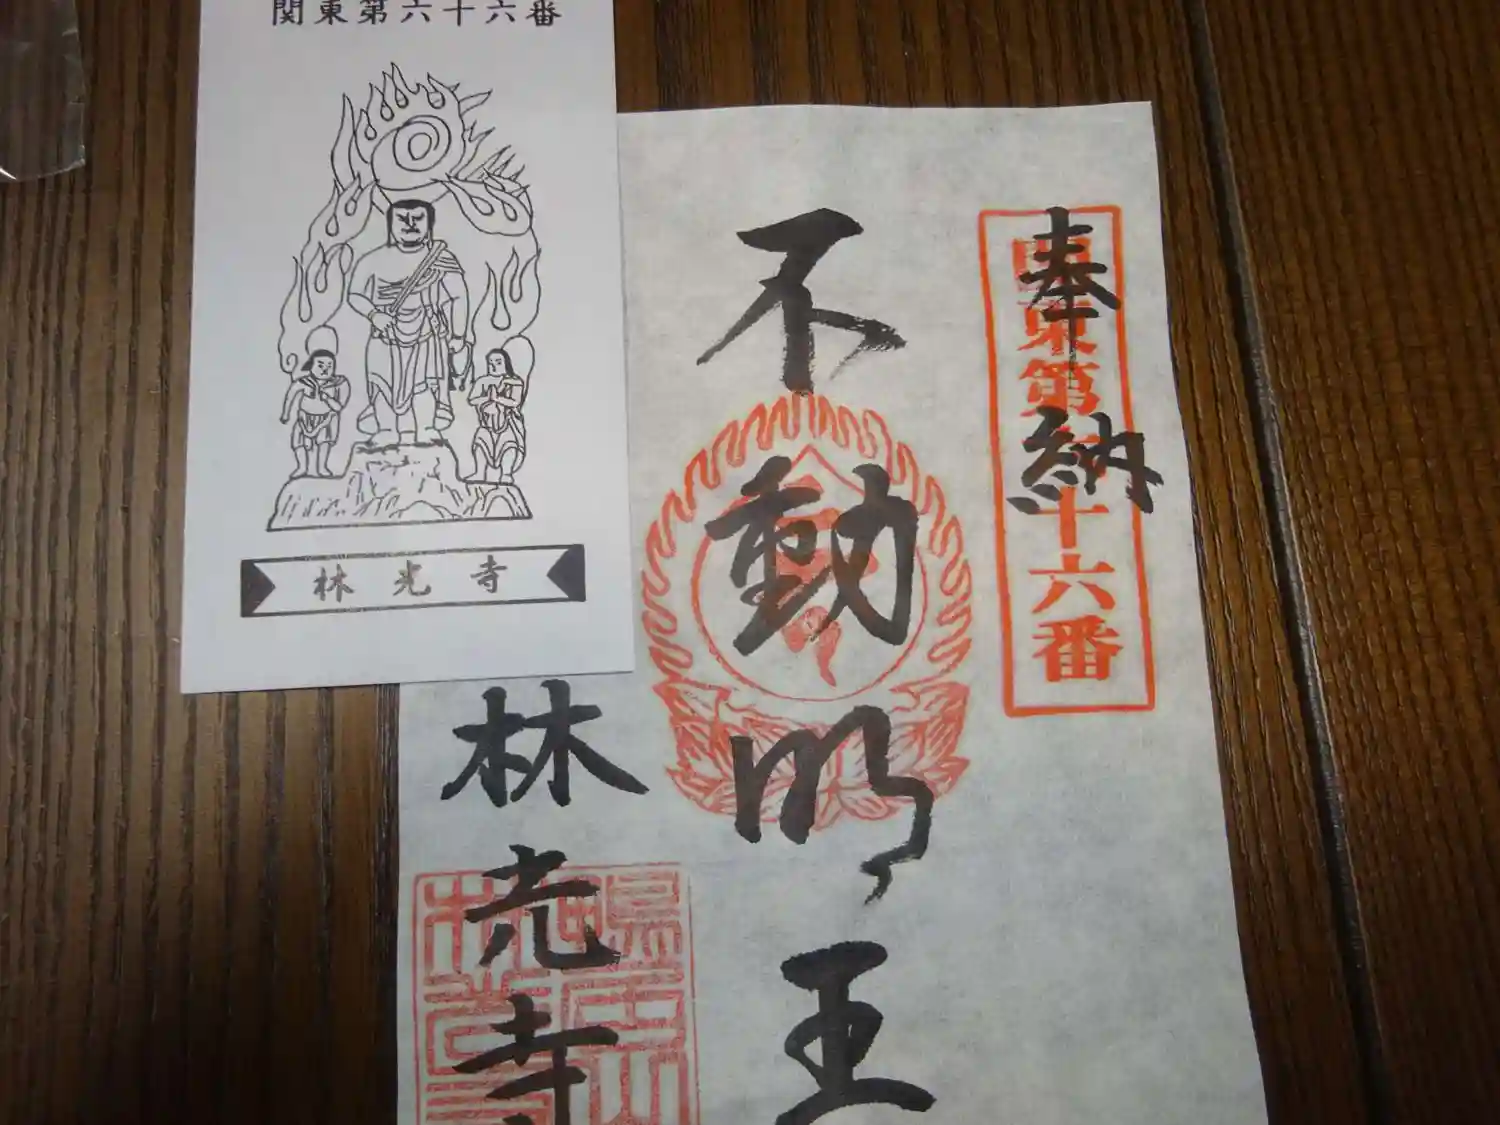 関東第六十六番
林光寺
奉納
関東第六十六番
不動明王
林光寺